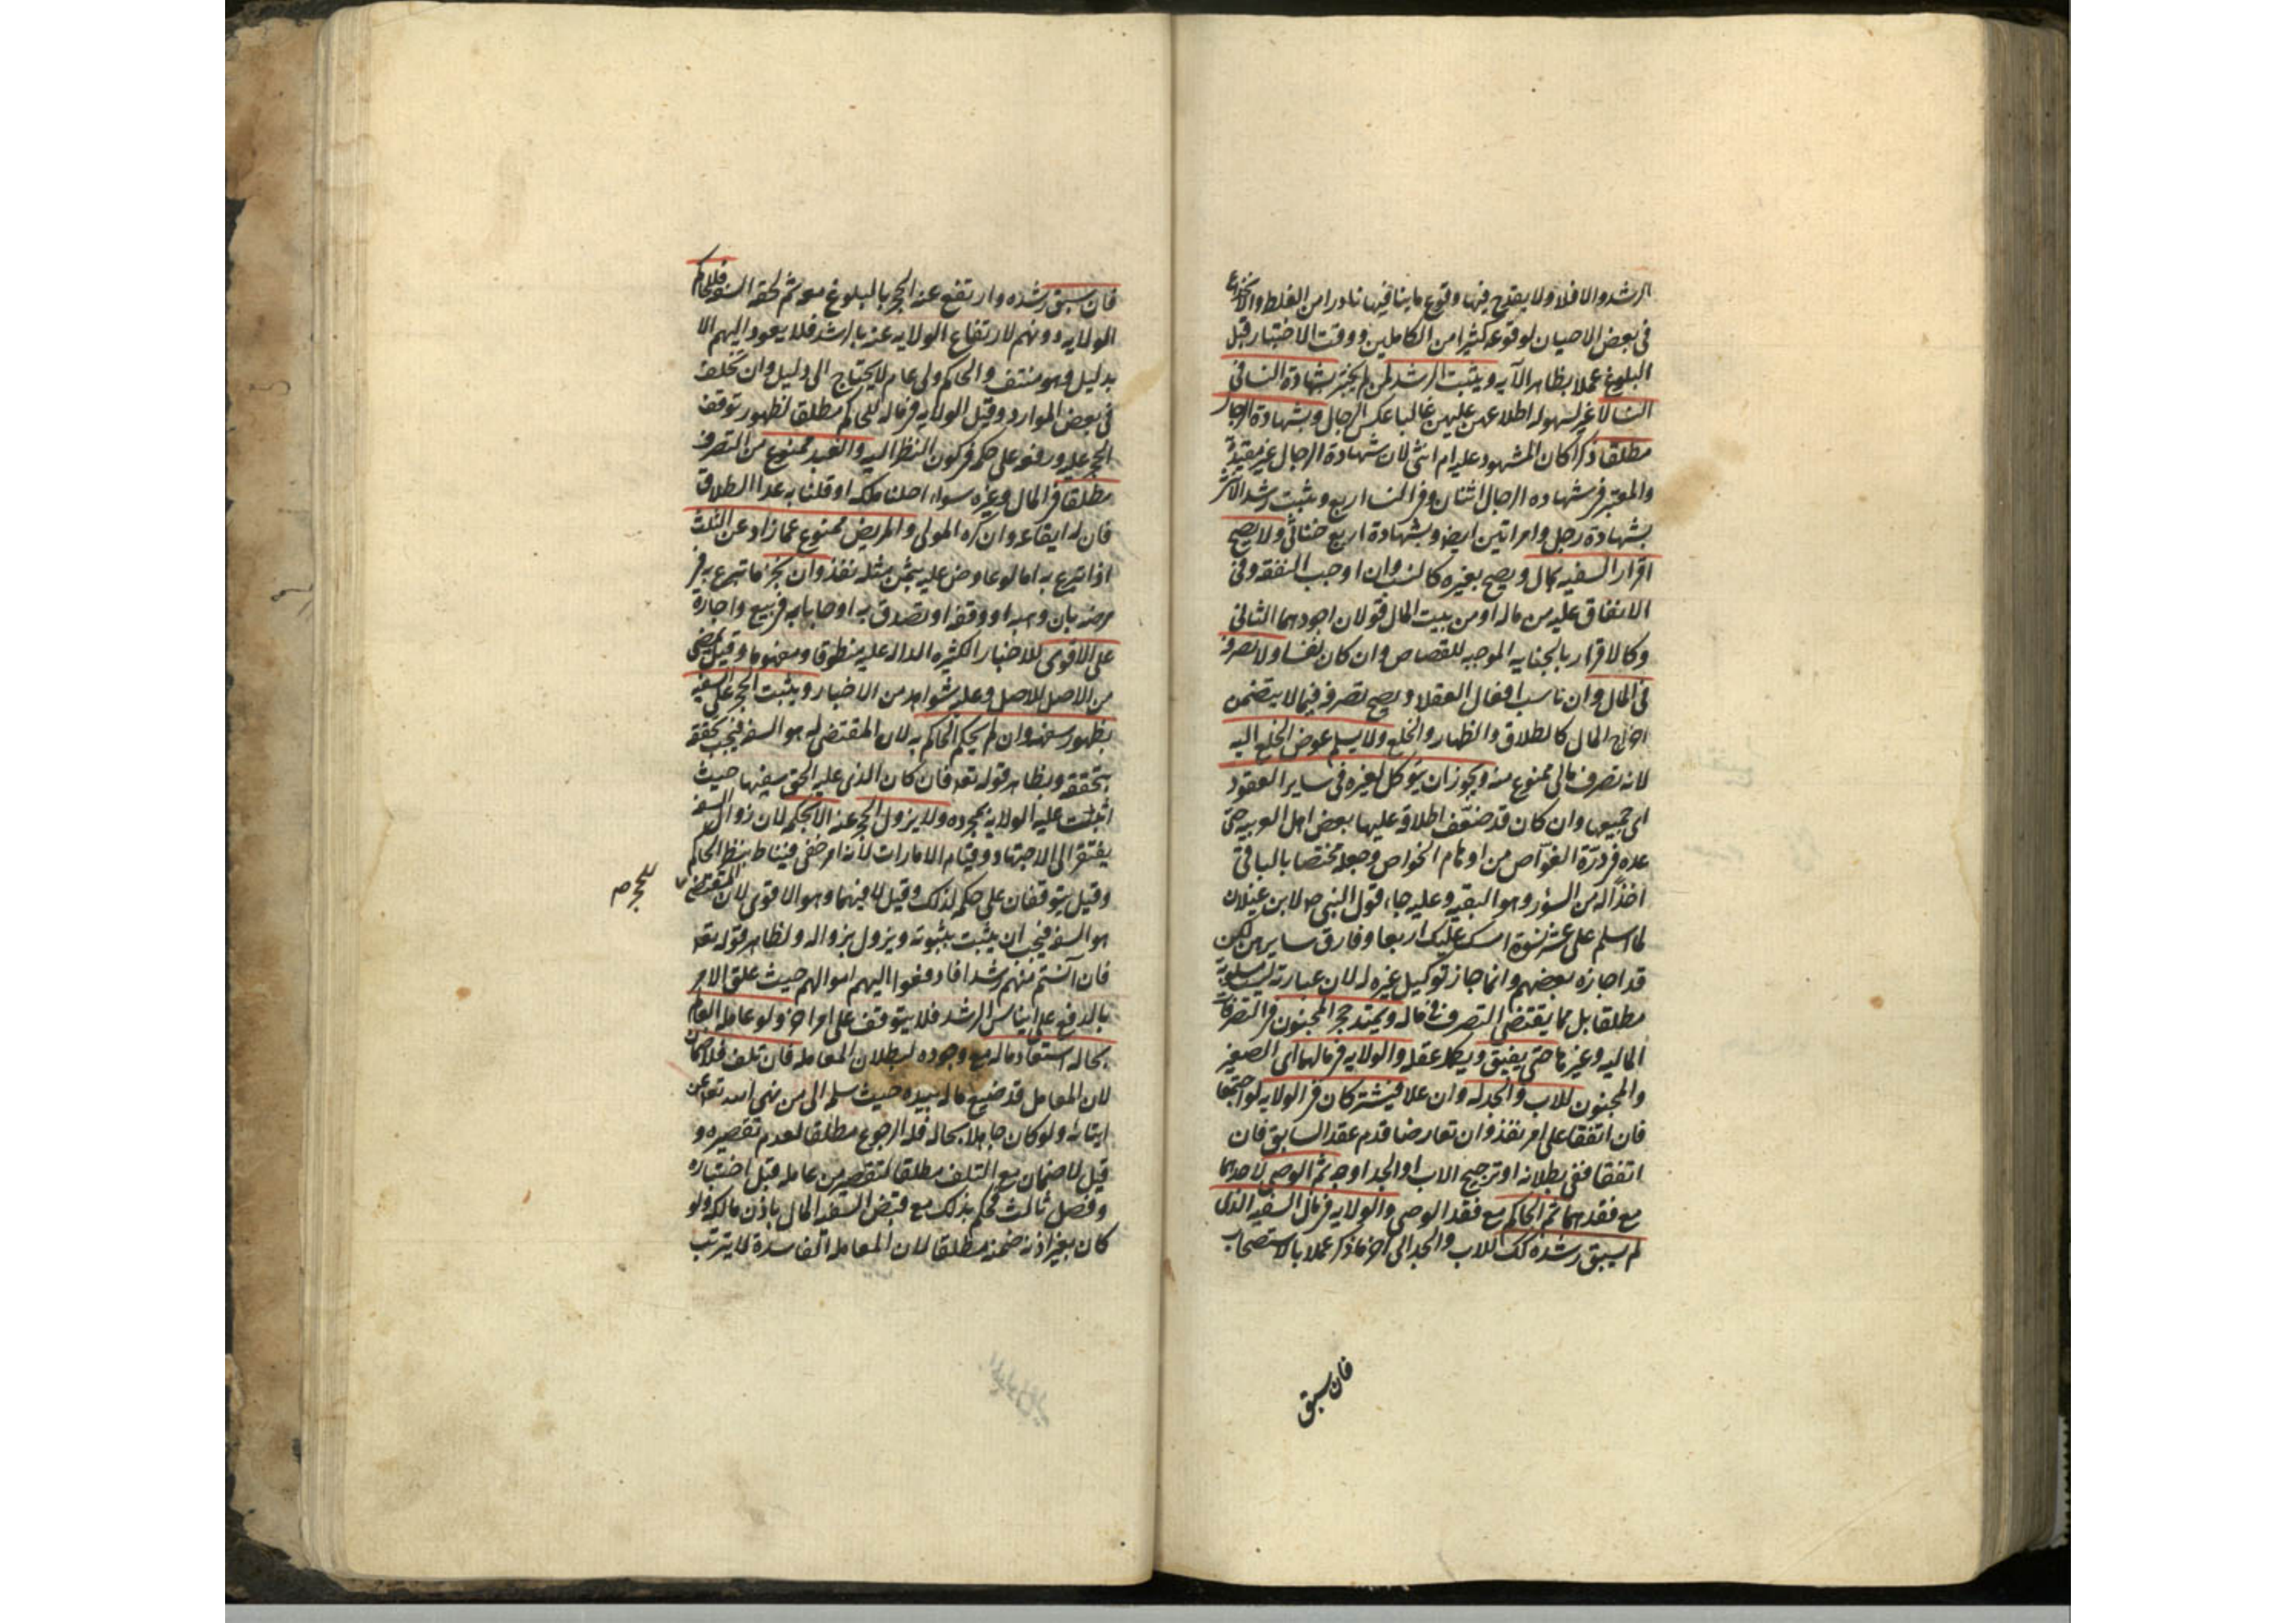 الرشد والا فلا ولا يقدح فيها وقوع ما ينافيها نادرا من الغلط والانخداع
فى بعض الاحيان لوقوعه كثيرا من الكاملين ووقت الاختبار قبل
البلوغ عملا بظاهر الآيه ويثبت الرشد لمن لم يختبر بشهادة النسا فى
النسا لا غير لسهوله اطلاعهن عليهن غالبا عكس الرجال وبشهادة الرجال
مطلقا ذكرا كان المشهود عليه ام انثى لان شهادة الرجال غير مقيدة
والمعتبر فى شهاده الرجال اثنان وفى النسا اربع ويثبت رشد الانثى
بشهادة رجل وامراتين ايضا وبشهادة اربع خناثى ولا يصح
اقرار السفيه بمال ويصح بغيره كالنسب وان اوجب النفقه وفى
الانفاق عليه من ماله او من بيت المال قولان اجودهما الثانى
وكالاقرار بالجنايه الموجبه للقصاص وان كان نفسا ولا تصرفه
فى المال وان ناسب افعال العقلا ويصح تصرفه فيما لا يتضمن
اخراج المال كالطلاق والظهار والخلع ولا يسلم عوض الخلع اليه
لانه تصرف مالى ممنوع منه ويجوز ان يتوكل لغيره فى ساير العقود
اى جميعها وان كان قد ضعّف اطلاقه عليها بعض اهل العربيه حتى
عده فى درّة الغوّاص من اوهام الخواص وجعله مختصا بالباقى
اخذًا له من السؤر وهو البقيه وعليه جاء قول النبى ص لابن غيلان
لما اسلم على عشر نسوة امسك عليك اربعا وفارق سايرهن لكن
قد اجازه بعضهم وانما جاز توكيل غيره له لان عبارته ليست مسلوبة
مطلقا بل مما يقتضى التصرف فى ماله ويمتد حجر المجنون فى التصرفات
الماليه وغيرها حتى يفيق ويكمل عقله والولايه فى مالهما اى الصغير
والمجنون للاب والجد له وان علا فيشتركان فى الولايه لو اجتمعا
فان اتفقا على امر نفذ وان تعارضا قدم عقد السابق فان
اتفقا ففى بطلانه او ترجيح الاب او الجد اوجه ثم الوصى لاحدهما
مع فقدهما ثم الحاكم مع فقد الوصى والولايه فى مال السفيه الذى
لم يسبق رشده كك للاب والجد الى اخر ما ذكر عملا بالاستصحاب
فان سبق
فان سبق رشده وارتفع عنه الحجر بالبلوغ معه ثم لحقه السفه فللحاكم
الولايه دونهم لارتفاع الولايه عنه بالرشد فلا يعود اليهم الا
بدليل وهو منتف والحاكم ولى عام لا يحتاج الى دليل وان تخلف
فى بعض الموارد وقيل الولايه فى ماله للحاكم مطلقا لظهور توقف
الحجر عليه ورفعه على حكمه فى كون النظر اليه والعبد ممنوع من التصرف
مطلقا فى المال وغيره سواء احلنا ملكه او قلنا به عدا الطلاق
فان له ايقاعه وان كره المولى والمريض ممنوع عما زاد عن الثلث
اذا تبرع به اما لو عاوض عليه بثمن مثله نفذ وان نجز ما تبرع به فى
مرضه بان وهبه او وقفه او تصدق به او حابا به فى بيع واجارة
على الاقوى للاخبار الكثيره الداله عليه منطوقا ومفهوما وقيل يمضى
من الاصل للاصل وعليه شواهد من الاخبار ويثبت الحجر على السفيه
بظهور سفهه وان لم يحكم الحاكم به لان المقتضى له هو السفه فيجب تحققه
بتحققه ولظاهر قوله تعه فان كان الذى عليه الحق سفيها حيث
اثبت عليه الولايه بمجرده ولا يزول الحجر عنه الا بحكمه لان زوال السفه
يفتقر الى الاجتهاد وقيام الامارات لانه امر خفى فيناط بنظر الحاكم
وقيل يتوقفان على حكمه لذلك وقيل لا فيهما وهو الاقوى لان المقتضى
للحجر ص
هو السفه فيجب ان يثبت بثبوته ويزول بزواله ولظاهر قوله تعه
فان آنستم منهم رشدا فادفعوا اليهم اموالهم حيث علق الامر
بالدفع على ايناس الرشد فلا يتوقف على امر اخر ولو عامله العالم
بحاله استعاد ماله مع وجوده لبطلان المعامله فان تلف فلا ضمان
لان المعامل قد ضيع ماله بيده حيث سلمه الى من نهى الله تعه عن
ايتائه ولو كان جاهلا بحاله فله الرجوع مطلقا لعدم تقصيره و
قيل لا ضمان مع التلف مطلقا لتقصير من عامله قبل اختباره
وفصل ثالث فحكم بذلك مع قبض السفيه المال باذن مالكه ولو
كان بغير اذنه ضمنه مطلقا لان المعامله الفاسدة لا يترتب